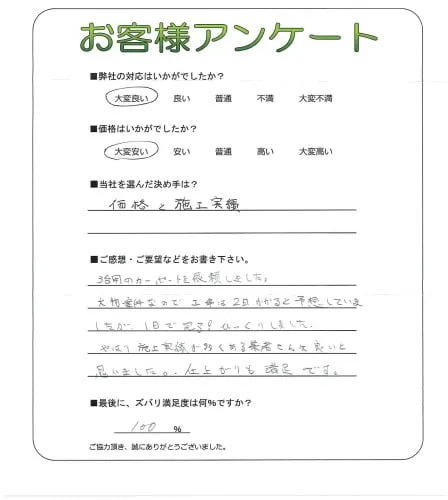 お客様アンケート
■弊社の対応はいかがでしたか？
大変良い 良い 普通 不満 大変不満
■価格はいかがでしたか？
大変安い 安い 普通 高い 大変高い
■当社を選んだ決め手は？
価格と施工実績
■ご感想・ご要望などをお書き下さい。
3台用のカーポートを依頼しました。
大物案件なので工事は2日かかると予想していま
したが、1日で完了！びっくりしました。
やはり施工実績が多くある業者さんは良いと
思いました。仕上がりも満足です。
■最後に、ズバリ満足度は何%ですか？
100 %
ご協力頂き、誠にありがとうございました。